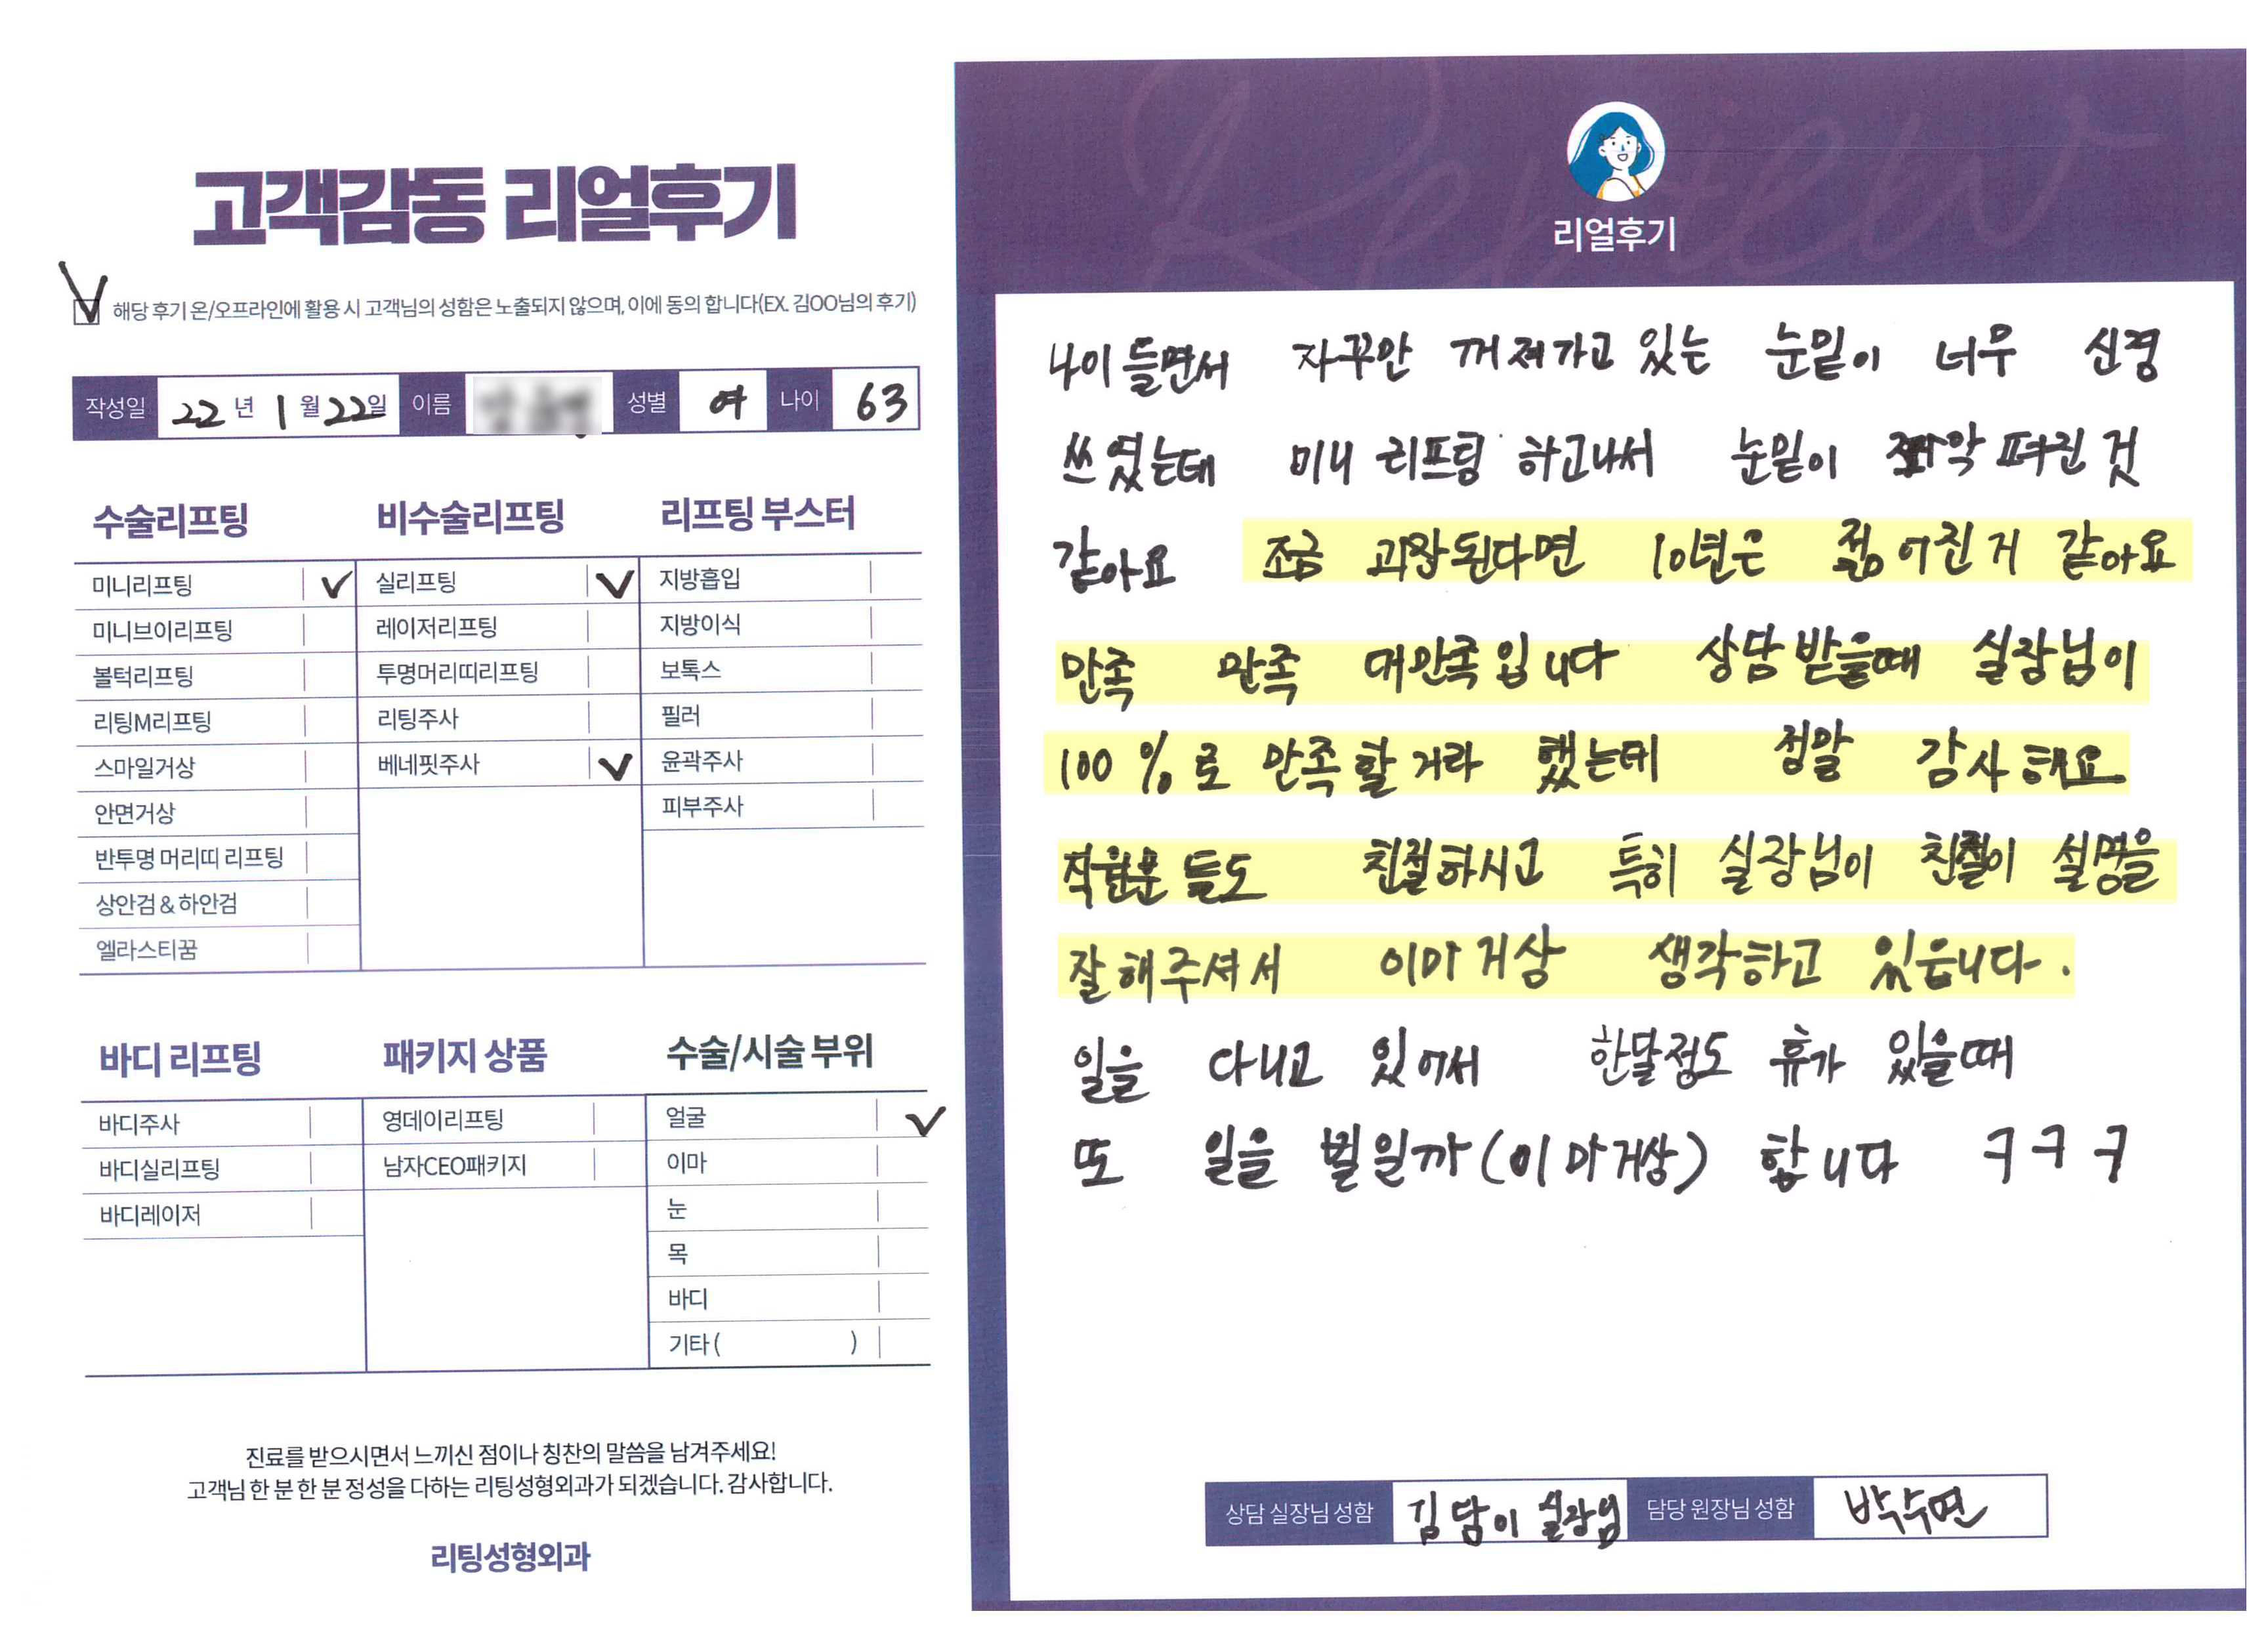 고객감동 리얼후기
해당 후기 온/오프라인에 활용 시 고객님의 성함은 노출되지 않으며, 이에 동의 합니다(EX. 김OO님의 후기)
작성일 22년 1월 22일 이름 성별 여 나이 63
수술리프팅
미니리프팅
미니브이리프팅
볼턱리프팅
리팅M리프팅
스마일거상
안면거상
반투명 머리띠 리프팅
상안검&하안검
엘라스티꿈
비수술리프팅
실리프팅
레이저리프팅
투명머리띠리프팅
리팅주사
베네핏주사
리프팅 부스터
지방흡입
지방이식
보톡스
필러
윤곽주사
피부주사
바디 리프팅
바디주사
바디실리프팅
바디레이저
패키지 상품
영데이리프팅
남자CEO패키지
수술/시술 부위
얼굴
이마
눈
목
바디
기타( )
진료를 받으시면서 느끼신 점이나 칭찬의 말씀을 남겨주세요!
고객님 한 분 한 분 정성을 다하는 리팅성형외과가 되겠습니다. 감사합니다.
리팅성형외과
Review
리얼후기
나이들면서 자꾸만 꺼져가고 있는 눈밑이 너무 신경
쓰였는데 미니 리프팅 하고나서 눈밑이 쫘악 펴진 것
같아요 조금 과장된다면 10년은 젊어진거 같아요
만족 만족 대만족입니다 상담받을때 실장님이
100%로 만족할거라 했는데 정말 감사해요
직원분들도 친절하시고 특히 실장님이 친절이 설명을
잘해주셔서 이마거상 생각하고 있읍니다.
일을 다니고 있어서 한달정도 휴가 있을때
또 일을 벌일까(이마거상) 합니다 ㅋㅋㅋ
상담 실장님 성함 김담이 실장님 담당 원장님 성함 박수연